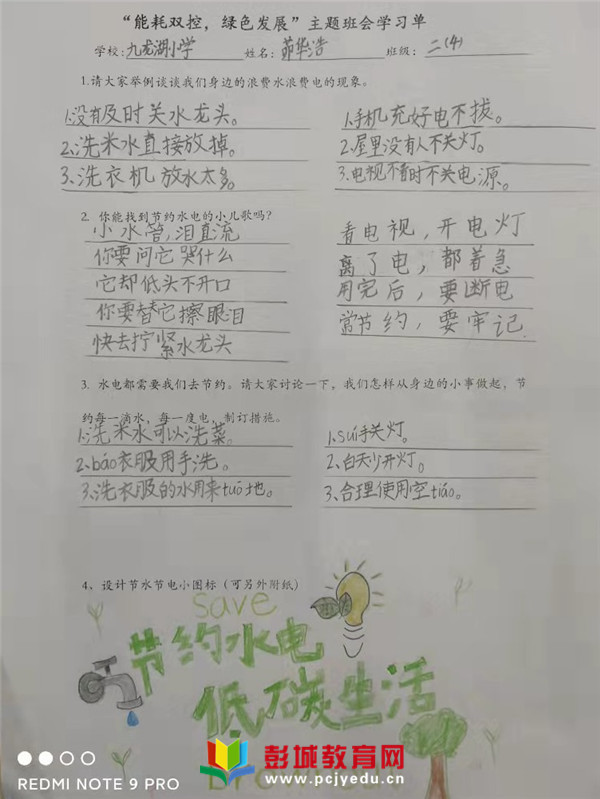 “能耗双控，绿色发展”主题班会学习单
学校:九龙湖小学 姓名:茆华浩 班级:二(4)
1.请大家举例谈谈我们身边的浪费水浪费电的现象。
1.没有及时关水龙头。
2.洗米水直接放掉。
3.洗衣机放水太多。
1.手机充好电不拔。
2.屋里没有人不关灯。
3.电视不看时不关电源。
2. 你能找到节约水电的小儿歌吗?
小水管,泪直流
你要问它哭什么
它却低头不开口
你要替它擦眼泪
快去拧紧水龙头
看电视,开电灯
离了电,都着急
用完后,要断电
常节约,要牢记.
3. 水电都需要我们去节约。请大家讨论一下，我们怎样从身边的小事做起，节
约每一滴水，每一度电，制订措施。
1.洗米水可以洗菜。
2.báo衣服用手洗。
3.洗衣服的水用来tuō地。
1.suí手关灯。
2.白天少开灯。
3.合理使用空tiáo。
4、设计节水节电小图标（可另外附纸）
save
节约水电
低碳生活
彭城教育网
www.pcjyedu.cn
REDMI NOTE 9 PRO